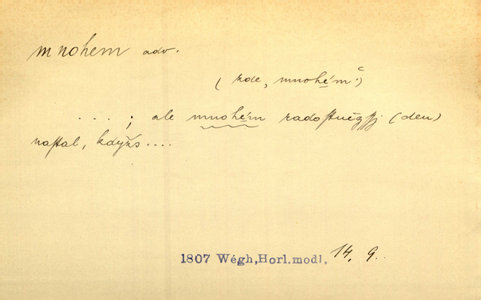 mnohem adv.
(zde „mnohém“)
....; ale mnohém radostněgssj (den)
nastal, když's....
1807 Wégh,Horl.modl, 14, 9.